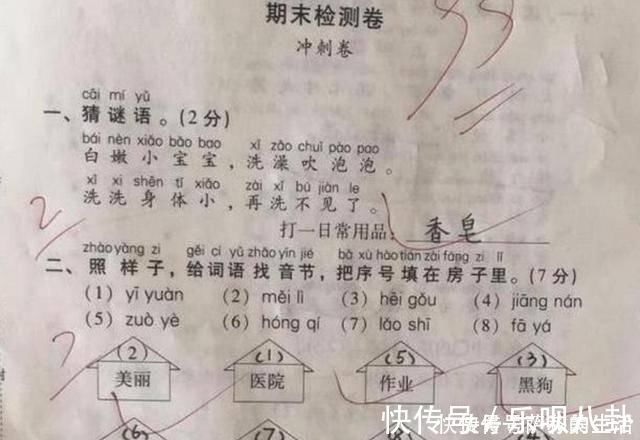 期末检测卷
冲刺卷
cāi mí yǔ
一、猜谜语。(2分)
bái nèn xiǎo bǎo bao xǐ zǎo chuī pào pao
白嫩小宝宝,洗澡吹泡泡。
xǐ xi shēn tǐ xiǎo zài xǐ bú jiàn le
洗洗身体小,再洗不见了。
打一日常用品:香皂
2
zhào yàng zi gěi cí yǔ zhǎo yīn jié bǎ xù hào tián zài fáng zi lǐ
二、照样子,给词语找音节,把序号填在房子里。(7分)
(1) yī yuàn (2) měi lì (3) hēi gǒu (4) jiāng nán
(5) zuò yè (6) hóng qí (7) lǎo shī (8) fā yá
7
(2) (1) (5) (3)
美丽 医院 作业 黑狗
(6) (7)
快传号/乐呗八卦